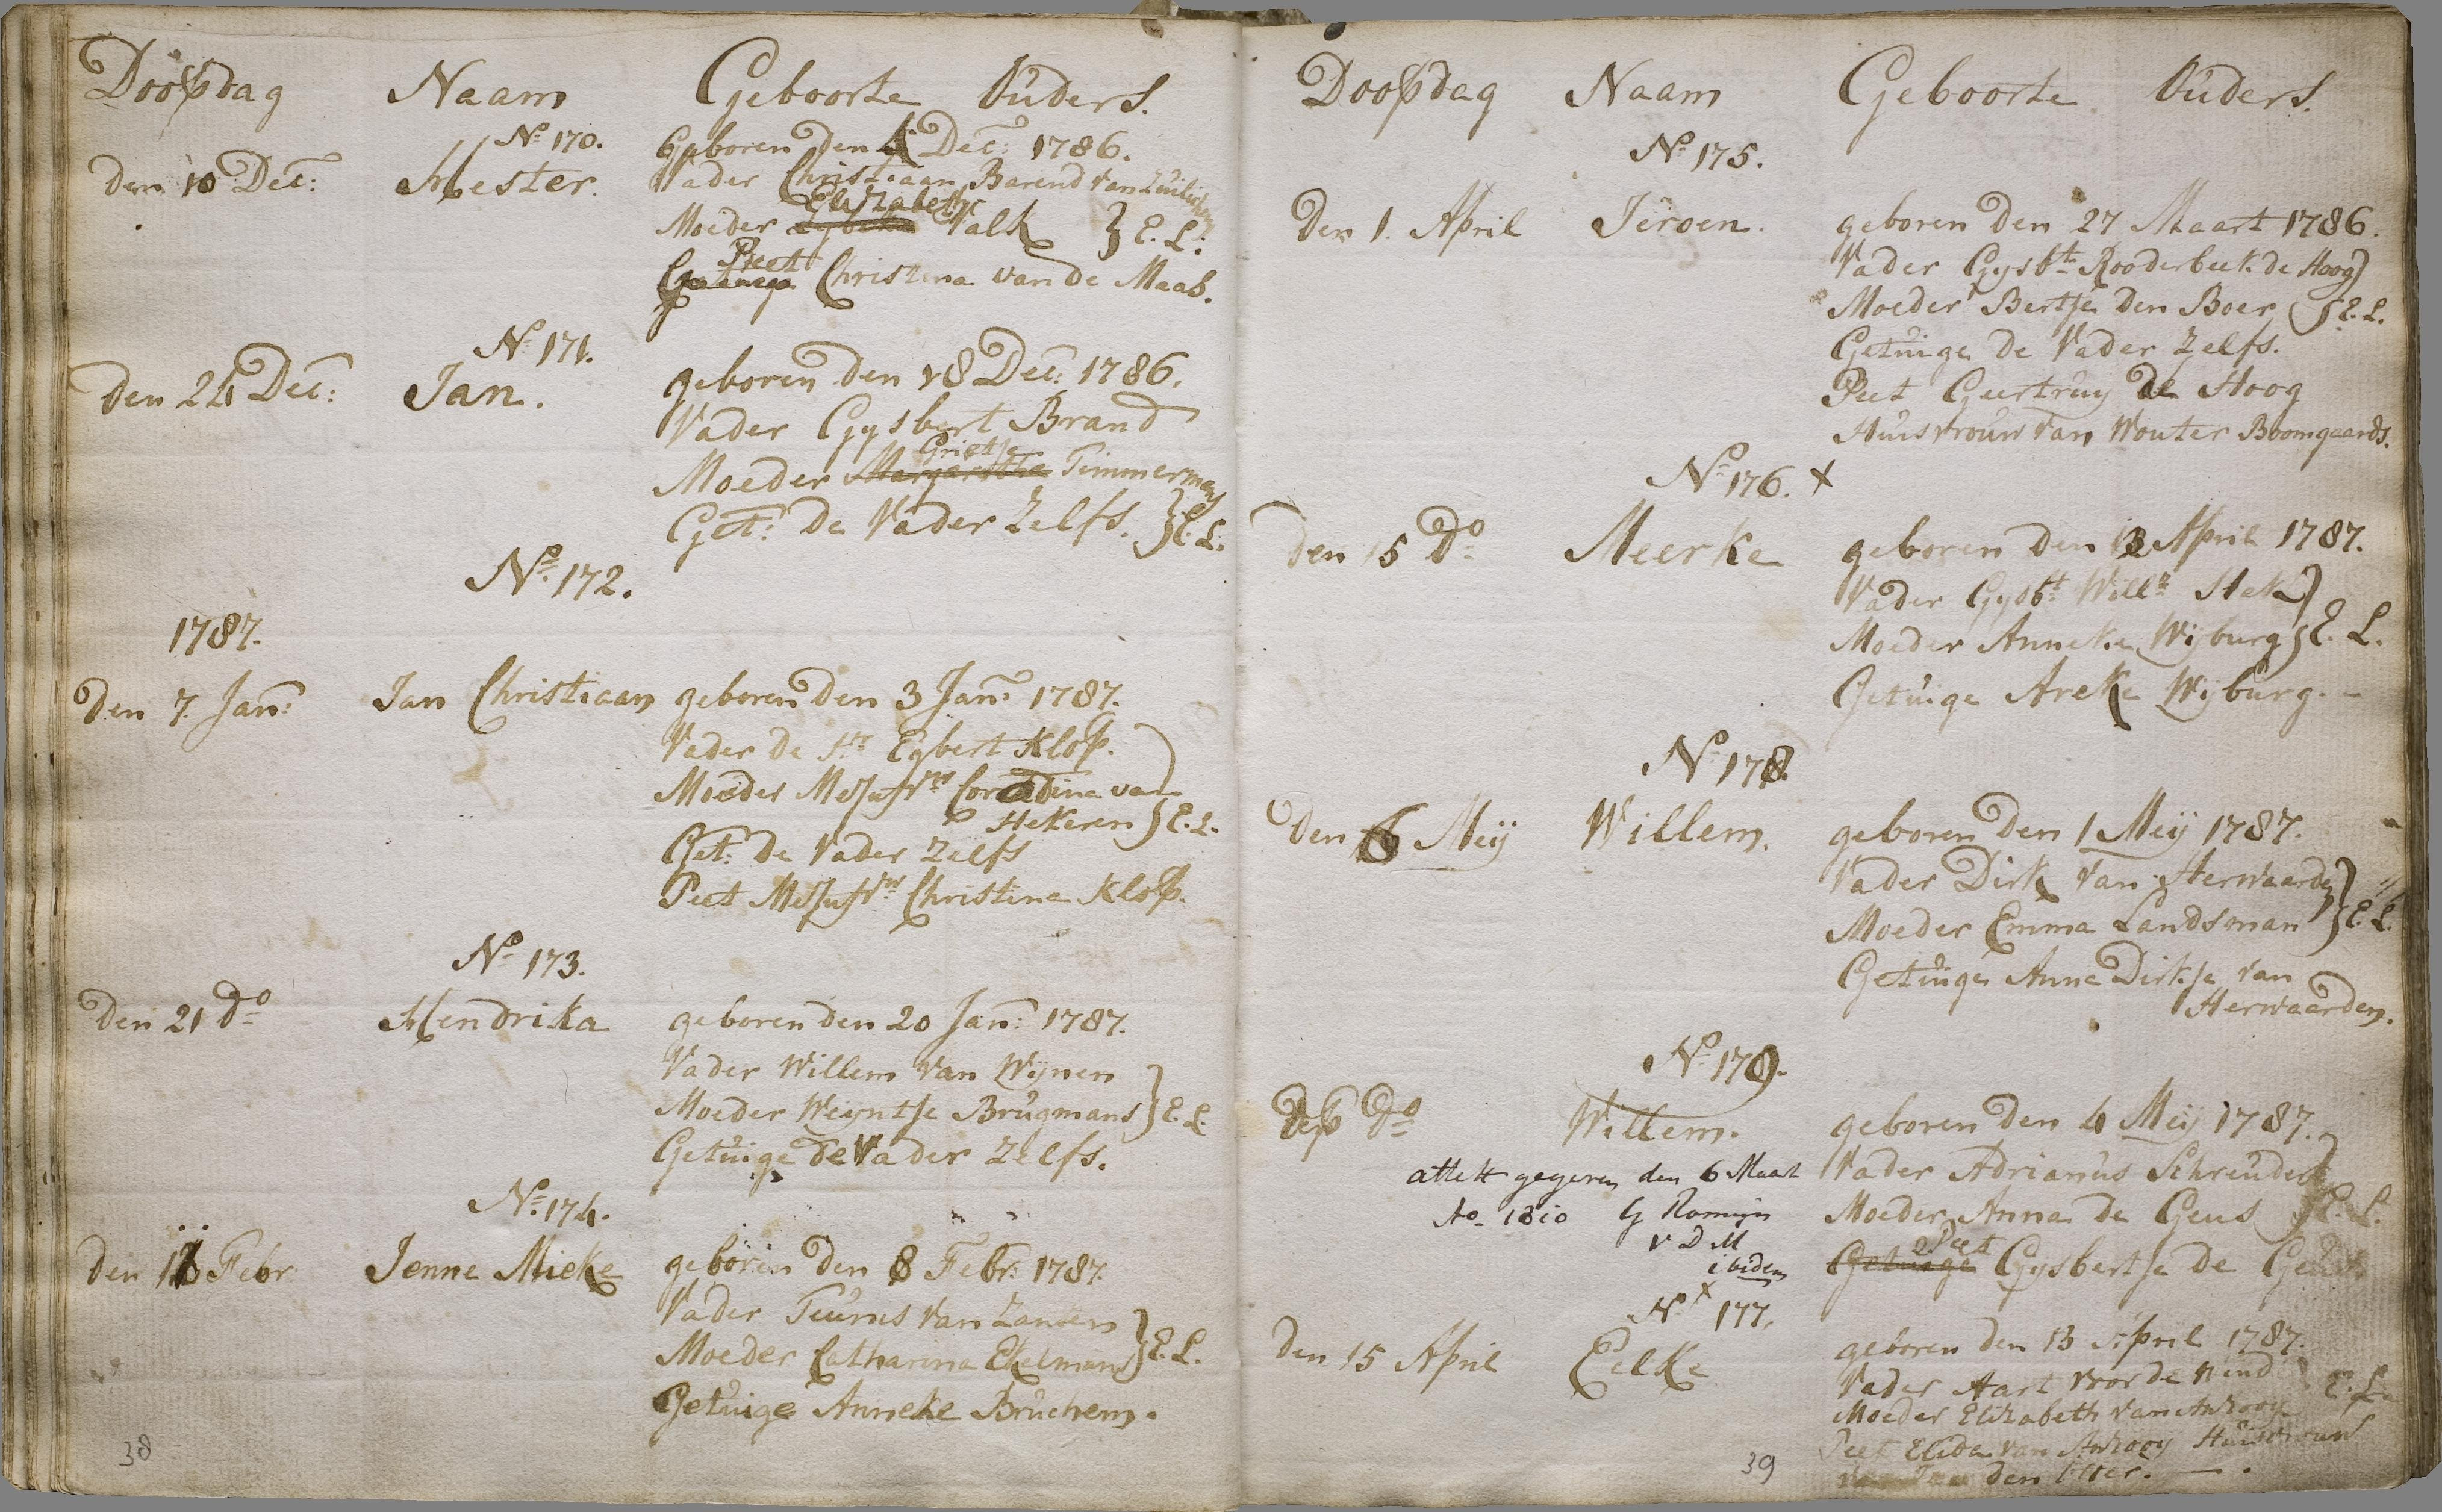 Doopdag Naam Geboorte Ouders.
No 170.
den 10 Dec: Hester. Geboren den 4 Dec: 1786.
Vader Christiaan Barend van Zuilichem
Elizabeth
Moeder Valk } E. L:
Peet
Getuige Christina van de Maas.
No 171.
den 24 Dec: Jan. geboren den 18 Dec: 1786.
Vader Gysbert Brand
Grietje
Moeder Margaretha Timmermans
Get: de Vader Zelfs. } E. L.
No 172.
1787.
den 7. Jan: Jan Christiaan geboren den 3 Jan: 1787.
Vader de Hr Egbert Klop.
Moeder Mejufvr Coradina van
Hekeren } E. L.
Get: de Vader Zelfs
Peet Mejufvr Christina Klop.
No 173.
den 21 Do Hendrika geboren den 20 Jan: 1787.
Vader Willem van Wynen
Moeder Weyntje Brugmans } E. L.
Getuige de Vader Zelfs.
No 174.
den 11 Febr Jenne Mieke geboren den 8 Febr: 1787.
Vader Teunis van Zanten
Moeder Catharina Ekelmans } E. L.
Getuige Anneke Bruchem.
38
Doopdag Naam Geboorte Ouders.
No 175.
Den 1. April Jeroen. geboren den 27 Maart 1786.
Vader Gysbt Rooderbeek de Hoog
Moeder Bertje den Boer } E. L.
Getuige de Vader Zelfs.
Peet Geertruy de Hoog
Huisvrouw van Wouter Boomgaards.
No 176. x
den 15 Do Meerke geboren den 13 April 1787.
Vader Gysbt Willm Hak
Moeder Anneke Wijburg } E. L.
Getuige Areke Wijburg. -
No 178.
den 6 Meij Willem. geboren den 1 Meij 1787.
Vader Dirk van Herwaarden
Moeder Emma Landsman } E. L.
Getuige Anna Dirkje van
Herwaarden.
No 179.
Dito Do Willem. geboren den 4 Meij 1787.
attest gegeven den 6 Maart Vader Adrianus Schreuder
Ao 1810 G Romijn Moeder Anna de Geus } E. L.
V D M Peet
ibidem Getuige Gysbertje de Geus
No x 177.
den 15 April Eelke geboren den 13 April 1787.
Vader Aart voor de Wind
Moeder Elizabeth van Anrooy E. L.
Peet Elida van Anrooy Huisvrouw
van Jan den Otter. -
39